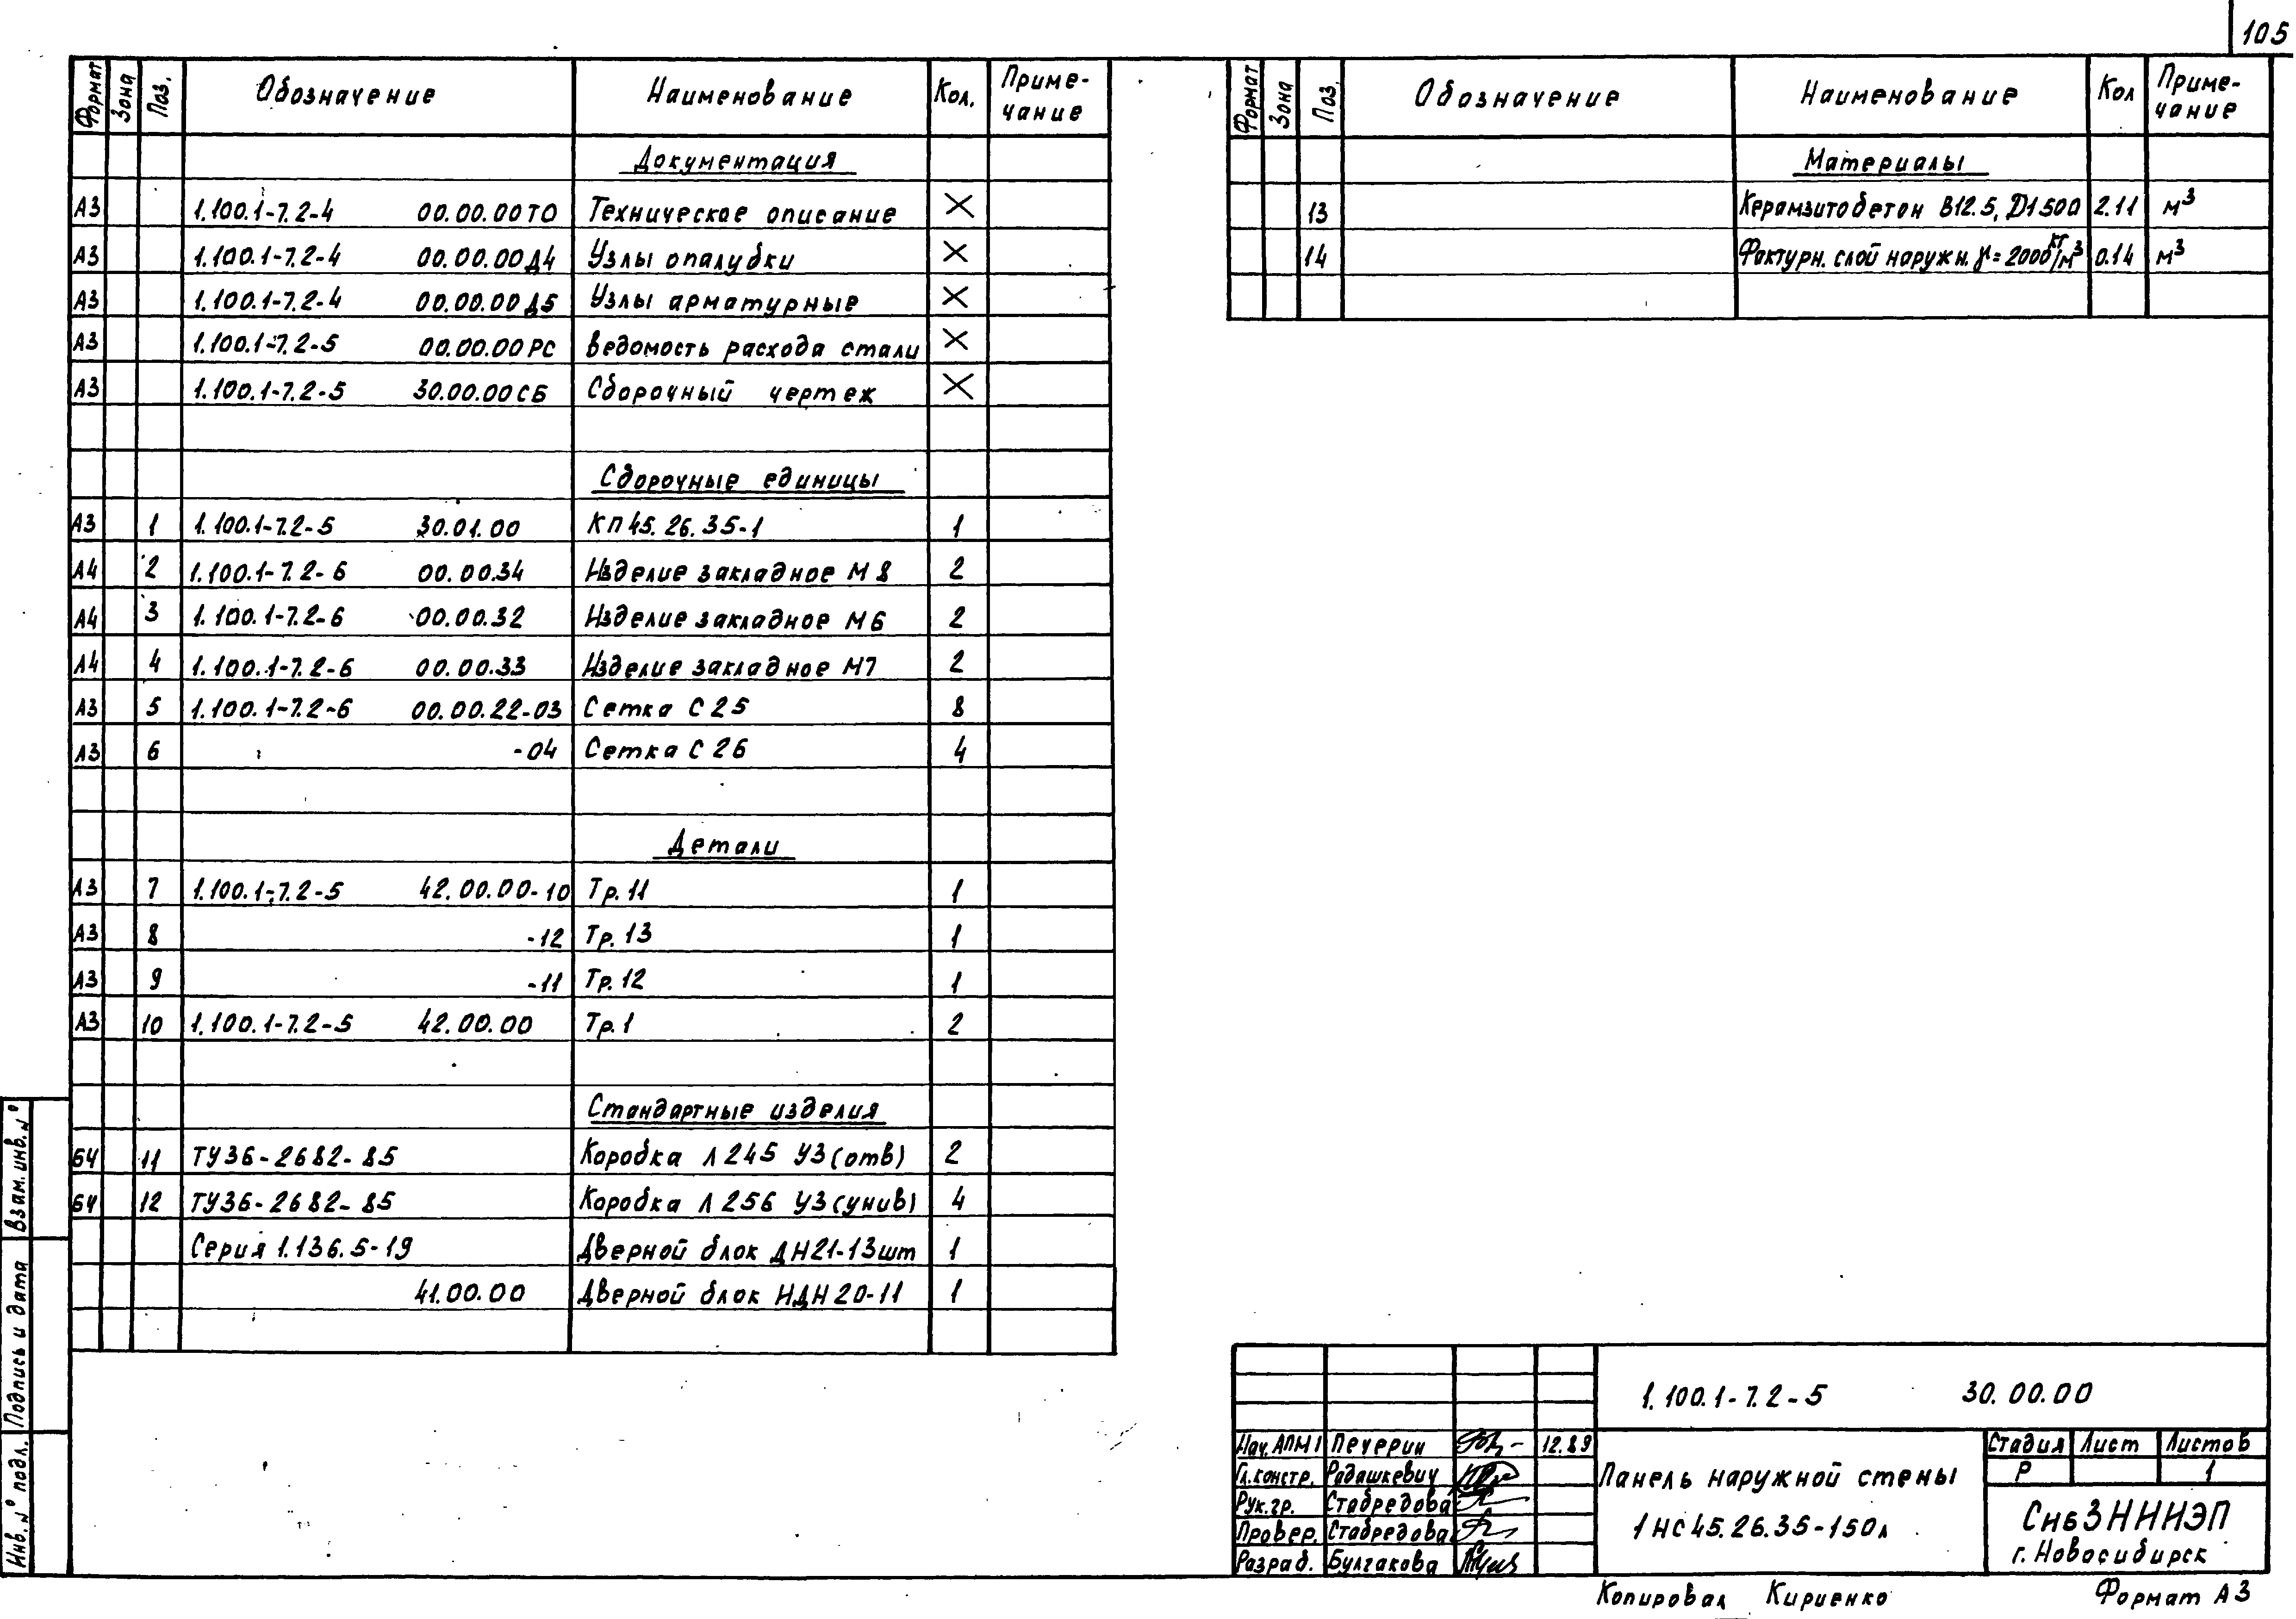 105
Формат Зона Поз. Обозначение Наименование Кол. Приме-чание
Документация
А3 1.100.1-7.2-4 00.00.00ТО Техническое описание X
А3 1.100.1-7.2-4 00.00.00Д4 Узлы опалубки X
А3 1.100.1-7.2-4 00.00.00Д5 Узлы арматурные X
А3 1.100.1-7.2-5 00.00.00РС Ведомость расхода стали X
А3 1.100.1-7.2-5 30.00.00СБ Сборочный чертеж X
Сборочные единицы
А3 1 1.100.1-7.2-5 30.01.00 КП45.26.35-1 1
А4 2 1.100.1-7.2-6 00.00.34 Изделие закладное М8 2
А4 3 1.100.1-7.2-6 00.00.32 Изделие закладное М6 2
А4 4 1.100.1-7.2-6 00.00.33 Изделие закладное М7 2
А3 5 1.100.1-7.2-6 00.00.22-03 Сетка С25 8
А3 6 -04 Сетка С26 4
Детали
А3 7 1.100.1-7.2-5 42.00.00-10 Тр.11 1
А3 8 -12 Тр.13 1
А3 9 -11 Тр.12 1
А3 10 1.100.1-7.2-5 42.00.00 Тр.1 2
Стандартные изделия
БЧ 11 ТУ36-2682-85 Коробка Л245 У3(отв) 2
БЧ 12 ТУ36-2682-85 Коробка Л256 У3(унив) 4
Серия 1.136.5-19 Дверной блок ДН21-13шт 1
41.00.00 Дверной блок НДН20-11 1
Формат Зона Поз. Обозначение Наименование Кол Приме-чание
Материалы
13 Керамзитобетон В12.5, Д1500 2.11 м³
14 Фактурн. слой наружн. γ=2000кг/м³ 0.14 м³
Взам.инв.№
Подпись и дата
Инв.№ подл.
1.100.1-7.2-5 30.00.00
Нач.АПМ1 Печерин 12.89
Гл.констр. Радашкевич
Рук.гр. Стабредова
Провер. Стабредова
Разраб. Булгакова
Панель наружной стены
1НС45.26.35-150л
Стадия Лист Листов
Р 1
СибЗНИИЭП
г. Новосибирск
Копировал Кириенко Формат А3